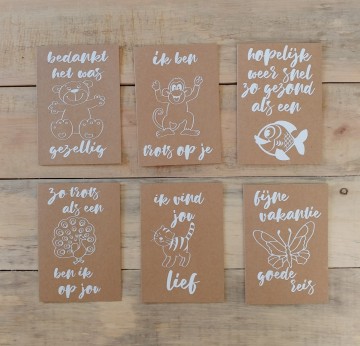 bedankt
het was
gezellig
ik ben
trots op je
hopelijk
weer snel
zo gezond
als een
zo trots
als een
ben ik
op jou
ik vind
jou
lief
fijne
vakantie
goede
reis